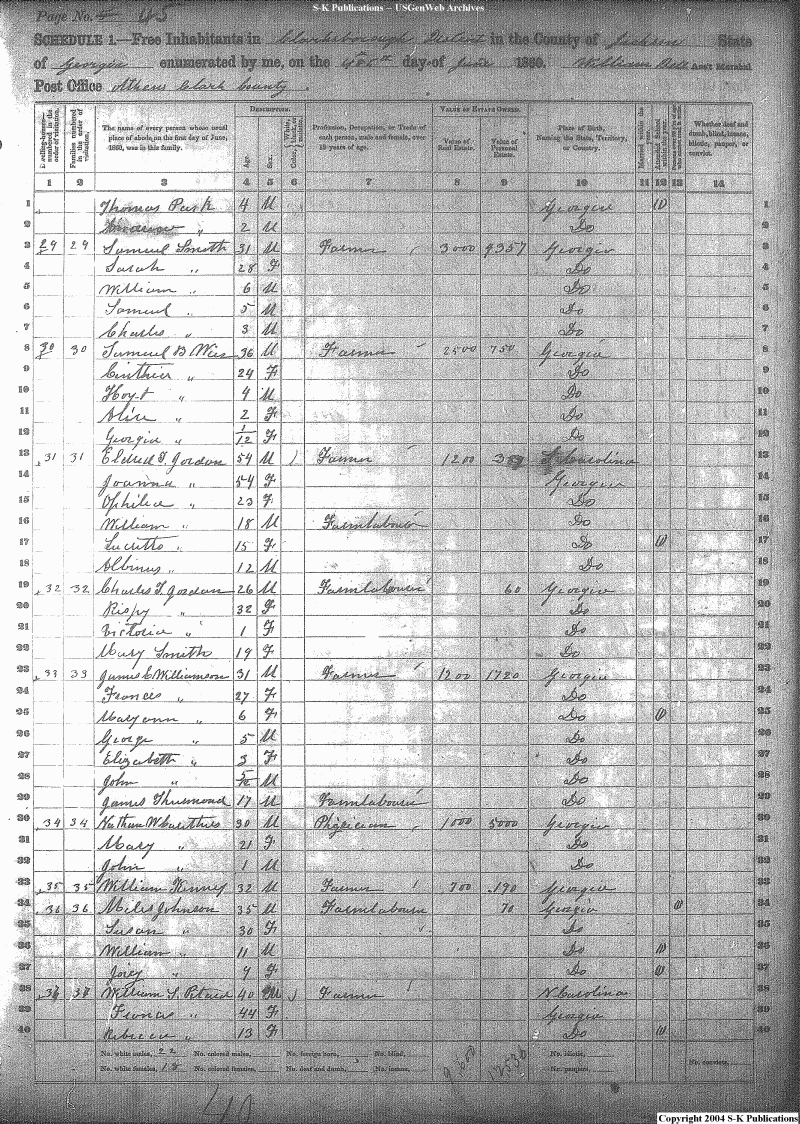 S-K Publications – USGenWeb Archives
Page No. 5 45
SCHEDULE 1.—Free Inhabitants in Clarksborough District in the County of Jackson State
of Georgia enumerated by me, on the day of June 1860. William Bell Ass't Marshal
Post Office Athens Clark County.
Dwelling-houses—numbered in the order of visitation. Families numbered in the order of visitation. The name of every person whose usual place of abode on the first day of June, 1860, was in this family. DESCRIPTION. Age. Sex. Color, {White, black, or mulatto. Profession, Occupation, or Trade of each person, male and female, over 15 years of age. VALUE OF ESTATE OWNED. Value of Real Estate. Value of Personal Estate. Place of Birth, Naming the State, Territory, or Country. Married within the year. Attended School within the year. Whether deaf and dumb, blind, insane, idiotic, pauper, or convict.
1 2 3 4 5 6 7 8 9 10 11 12 13 14
1 Thomas Park 4 M Georgia 1
2 " 2 M Do 2
3 29 29 Samuel Smith 31 M Farmer 3000 9357 Georgia 3
4 Sarah " 28 F Do 4
5 William " 6 M Do 5
6 Samuel " 5 M Do 6
7 Charles " 3 M Do 7
8 30 30 Samuel B. 36 M Farmer 2500 750 Georgia 8
9 Cinthia " 24 F Do 9
10 Hoyt " 4 M Do 10
11 Alice " 2 F Do 11
12 Georgia " 1/12 F Do 12
13 31 31 Eldred T. Gordon 54 M ) Farmer 1200 Carolina 13
14 Joanna " 54 F Georgia 14
15 Ophilia " 23 F Do 15
16 William " 18 M Farmlabour Do 16
17 " 15 F Do 17
18 Albinus " 12 M Do 18
19 32 32 Charles T. Gordon 26 M Farmlabourer 60 Georgia 19
20 Rispy " 32 F Do 20
21 Victoria " 1 F Do 21
22 Mary Smith 19 F Do 22
23 33 33 James C Williamson 31 M Farmer 1200 1720 Georgia 23
24 Frances " 27 F Do 24
25 Mary ann " 6 F Do 25
26 George " 5 M Do 26
27 Elizabeth " 3 F Do 27
28 John " 5/12 M Do 28
29 James Thurmond 17 M Farmlabourer Do 29
30 34 34 Nathan W Carithers 30 M Phisician 1000 5000 Georgia 30
31 Mary " 21 F Do 31
32 John " 1 M Do 32
33 35 35 William Kenney 32 M Farmer 700 190 Georgia 33
34 36 36 Miles Johnson 35 M Farmlabourer 70 Georgia 34
35 Susan " 30 F Do 35
36 William " 11 M Do 36
37 " 9 F Do 37
38 37 37 William S. Pitard 40 M ) Farmer N. Carolina 38
39 Francis " 44 F Georgia 39
40 Rebecca " 13 F Do 40
No. white males, 22 No. colored males, No. foreign born, No. blind, No. idiotic, No. convicts,
No. white females, 18 No. colored females, No. deaf and dumb, No. insane, No. paupers,
40
Copyright 2004 S-K Publications